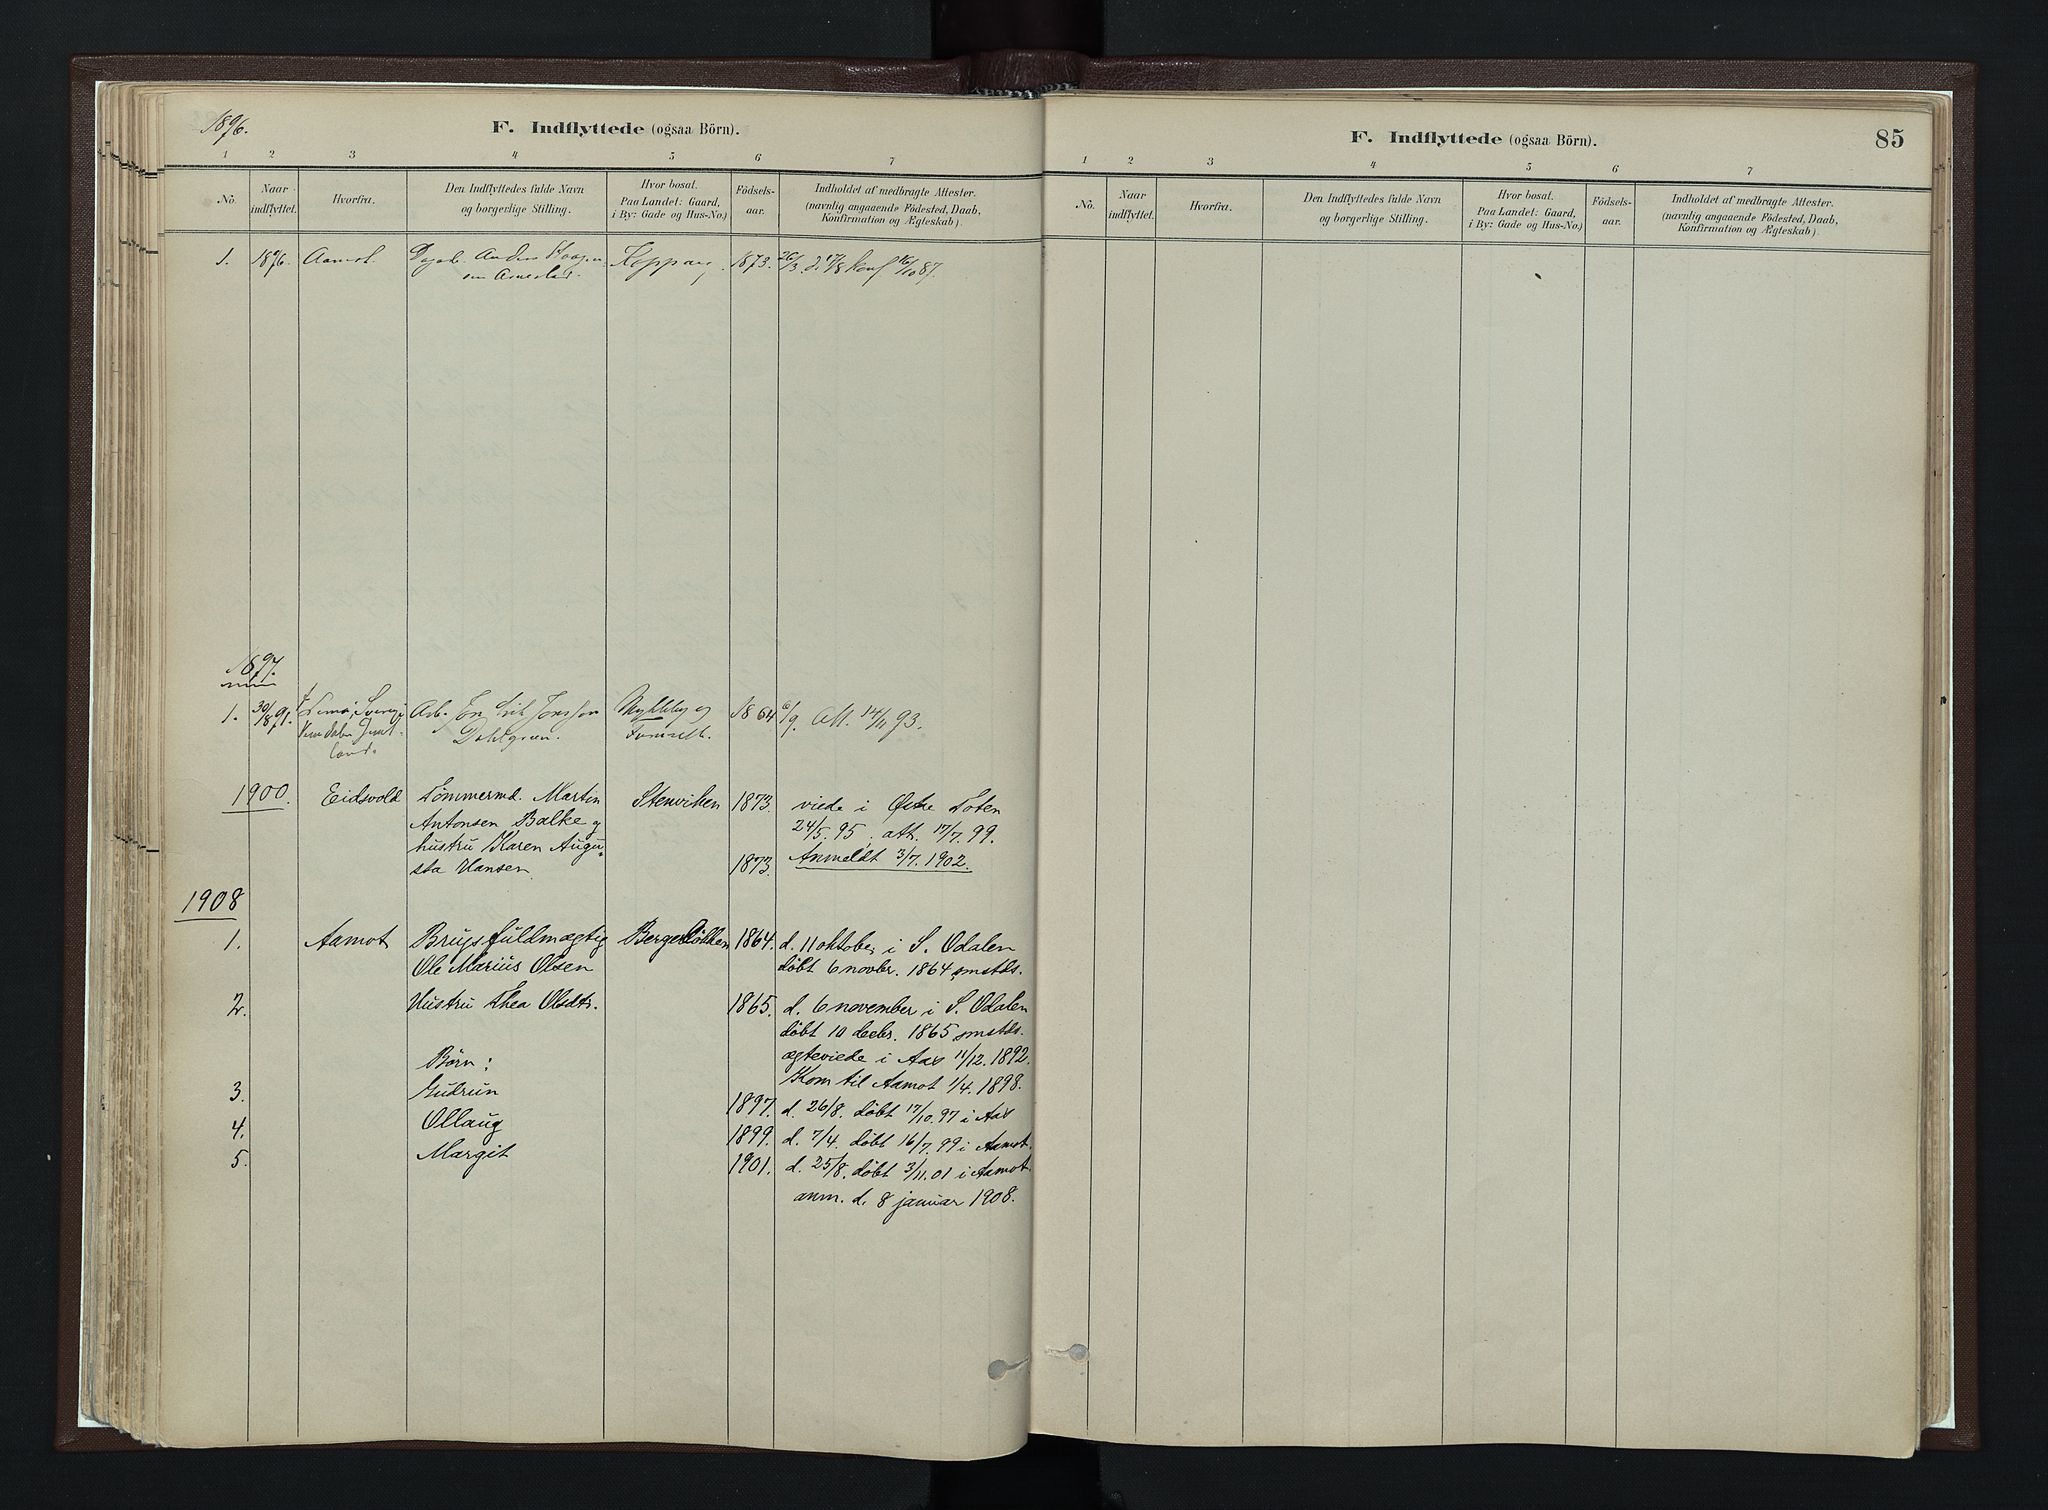 1896.
F. Indflyttede (ogsaa Börn).
1 2 3 4 5 6 7
No. Naar indflyttet. Hvorfra. Den Indflyttedes fulde Navn og borgerlige Stilling. Hvor bosat. Paa Landet: Gaard, i By: Gade og Hus-No.) Födsels-aar. Indholdet af medbragte Attester. (navnlig angaaende Födested, Daab, Konfirmation og Ægteskab).
1. 1896. Aamot. Anders Koppang 1873. 26/3 d. 17/8 konf 16/10 87.
1897.
1. 30/8 97. Arb. Jon Erik Jonsson Mykleby og 1864 6/9. Att. 14/11 93.
Dahlgren.
1900. Eidsvold Tømmermd. Martin Stenviken 1873. viede i Østre Toten
Antonsen Balke g 24/5. 95. att. 17/7. 99.
hustru Karen Augu- 1873. Anmeldt 3/7. 1902.
sta Hansen.
1908
1. Aamot Brugsfuldmægtig Bergeløkken 1864. d. 11 oktober i S. Odalen
Ole Marius Olsen døbt 6 novbr. 1864 smstds.
2. Hustru Thea Olsdtr. 1865. d. 6 november i S. Odalen
døbt 10 decbr. 1865 smstds.
Børn: ægteviede i Aas 11/12. 1892.
3. Gudrun Kom til Aamot 1/4. 1898.
1897. d. 26/8. døbt 17/10. 97 i Aas
4. Ollaug 1899. d. 7/4. døbt 16/7. 99 i Aamot.
5. Margit 1901. d. 25/8. døbt 3/11. 01 i Aamot.
anm. d. 8 januar 1908.
F. Indflyttede (ogsaa Börn).
85
1 2 3 4 5 6 7
No. Naar indflyttet. Hvorfra. Den Indflyttedes fulde Navn og borgerlige Stilling. Hvor bosat. Paa Landet: Gaard, i By: Gade og Hus-No.) Födsels-aar. Indholdet af medbragte Attester. (navnlig angaaende Födested, Daab, Konfirmation og Ægteskab).